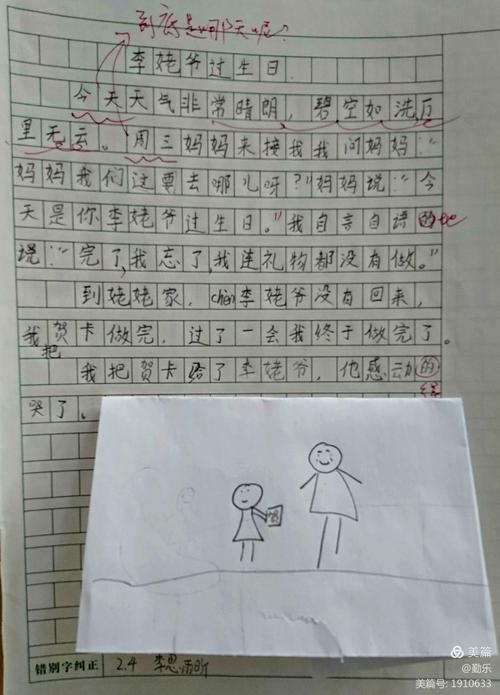 到底是哪天呢?
李姥爷过生日
今天天气非常晴朗，碧空如洗，万
里无云。周三妈妈来接我我问妈妈:“
妈妈我们这要去哪儿呀?”妈妈说:“今
天是你李姥爷过生日。”我自言自语的
说:“完了,我忘了,我连礼物都没有做。”
到姥姥家，chèn李姥爷没有回来，
我把贺卡做完，过了一会我终于做完了。
我把贺卡给了李姥爷，他感动的
哭了。
错别字纠正 2.4 李思雨昕
美篇
@勤乐
美篇号: 1910633